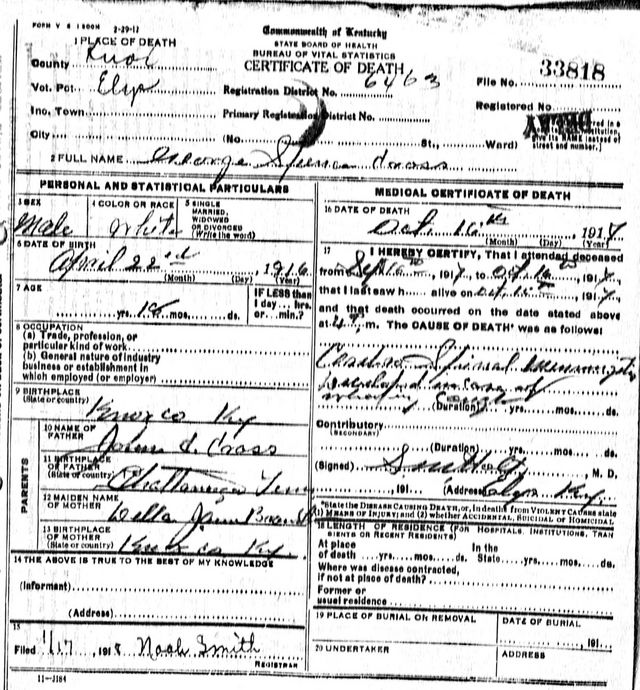 FORM V S 1 500M 2-29-12
Commonwealth of Kentucky
STATE BOARD OF HEALTH
BUREAU OF VITAL STATISTICS
CERTIFICATE OF DEATH
1 PLACE OF DEATH
County Knox
File No. 33818
Vot. Pct. Elys
Registration District No. 6463
Registered No.
Inc. Town
Primary Registration District No.
City (No. St., Ward)
give its NAME instead of street and number.)
2 FULL NAME George Spence
PERSONAL AND STATISTICAL PARTICULARS
3 SEX Male
4 COLOR OR RACE White
5 SINGLE MARRIED, WIDOWED OR DIVORCED (Write the word)
6 DATE OF BIRTH
April 22nd 1916
(Month) (Day) (Year)
7 AGE
yrs. 18 mos. ds.
IF LESS than 1 day... hrs. or...min.?
8 OCCUPATION
(a) Trade, profession, or particular kind of work
(b) General nature of industry business or establishment in which employed (or employer)
9 BIRTHPLACE
(State or country) Knox co Ky
PARENTS
10 NAME OF FATHER
11 BIRTHPLACE OF FATHER (State or country) Chattanooga Tenn
12 MAIDEN NAME OF MOTHER Della
13 BIRTHPLACE OF MOTHER (State or country) Knox co Ky.
14 THE ABOVE IS TRUE TO THE BEST OF MY KNOWLEDGE
(Informant)
(Address)
15
Filed 1/17 1918 Noah Smith
REGISTRAR
11-3184
MEDICAL CERTIFICATE OF DEATH
16 DATE OF DEATH
Oct. 16th 1917
(Month) (Day) (Year)
17 I HEREBY CERTIFY, That I attended deceased
from Sep 16 1917, to Oct. 16 1917,
that I last saw h alive on Oct. 15th 1917,
and that death occurred on the date stated above
at 4 m. The CAUSE OF DEATH* was as follows:
Cerebro Spinal Meningitis
Developed in
(Duration) yrs. mos. ds.
Contributory
(SECONDARY)
(Duration) yrs. mos. ds.
(Signed) M. D.
, 191 (Address) Elys Ky.
*State the DISEASE CAUSING DEATH, or, in deaths from VIOLENT CAUSES state (1) MEANS OF INJURY; and (2) whether ACCIDENTAL, SUICIDAL or HOMICIDAL
18 LENGTH OF RESIDENCE (FOR HOSPITALS, INSTITUTIONS, TRANSIENTS OR RECENT RESIDENTS)
At place of death yrs. mos. ds. In the State yrs. mos. ds.
Where was disease contracted, if not at place of death?
Former or usual residence
19 PLACE OF BURIAL OR REMOVAL
DATE OF BURIAL
191
20 UNDERTAKER
ADDRESS